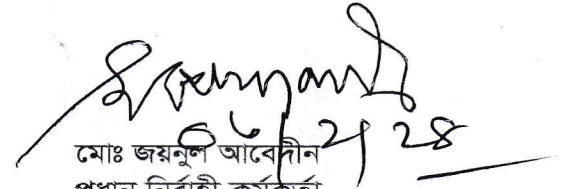 ০৬/২/২৪
মোঃ জয়নুল আবেদীন
প্রধান নির্বাহী কর্মকর্তা